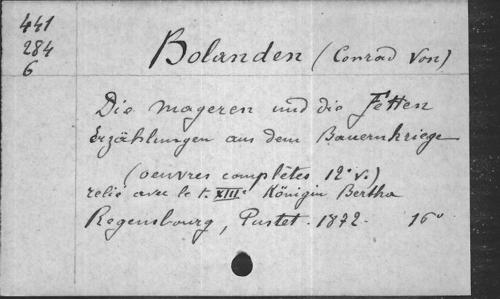 441
284
6
Bolanden (Conrad Von)
Die mageren und die Fetten
Erzählungen aus dem Bauernkriege
(oeuvres complètes 12e v.)
relié avec le t. XIIIe Königin Bertha
Regensbourg, Pustet. 1872. 16°